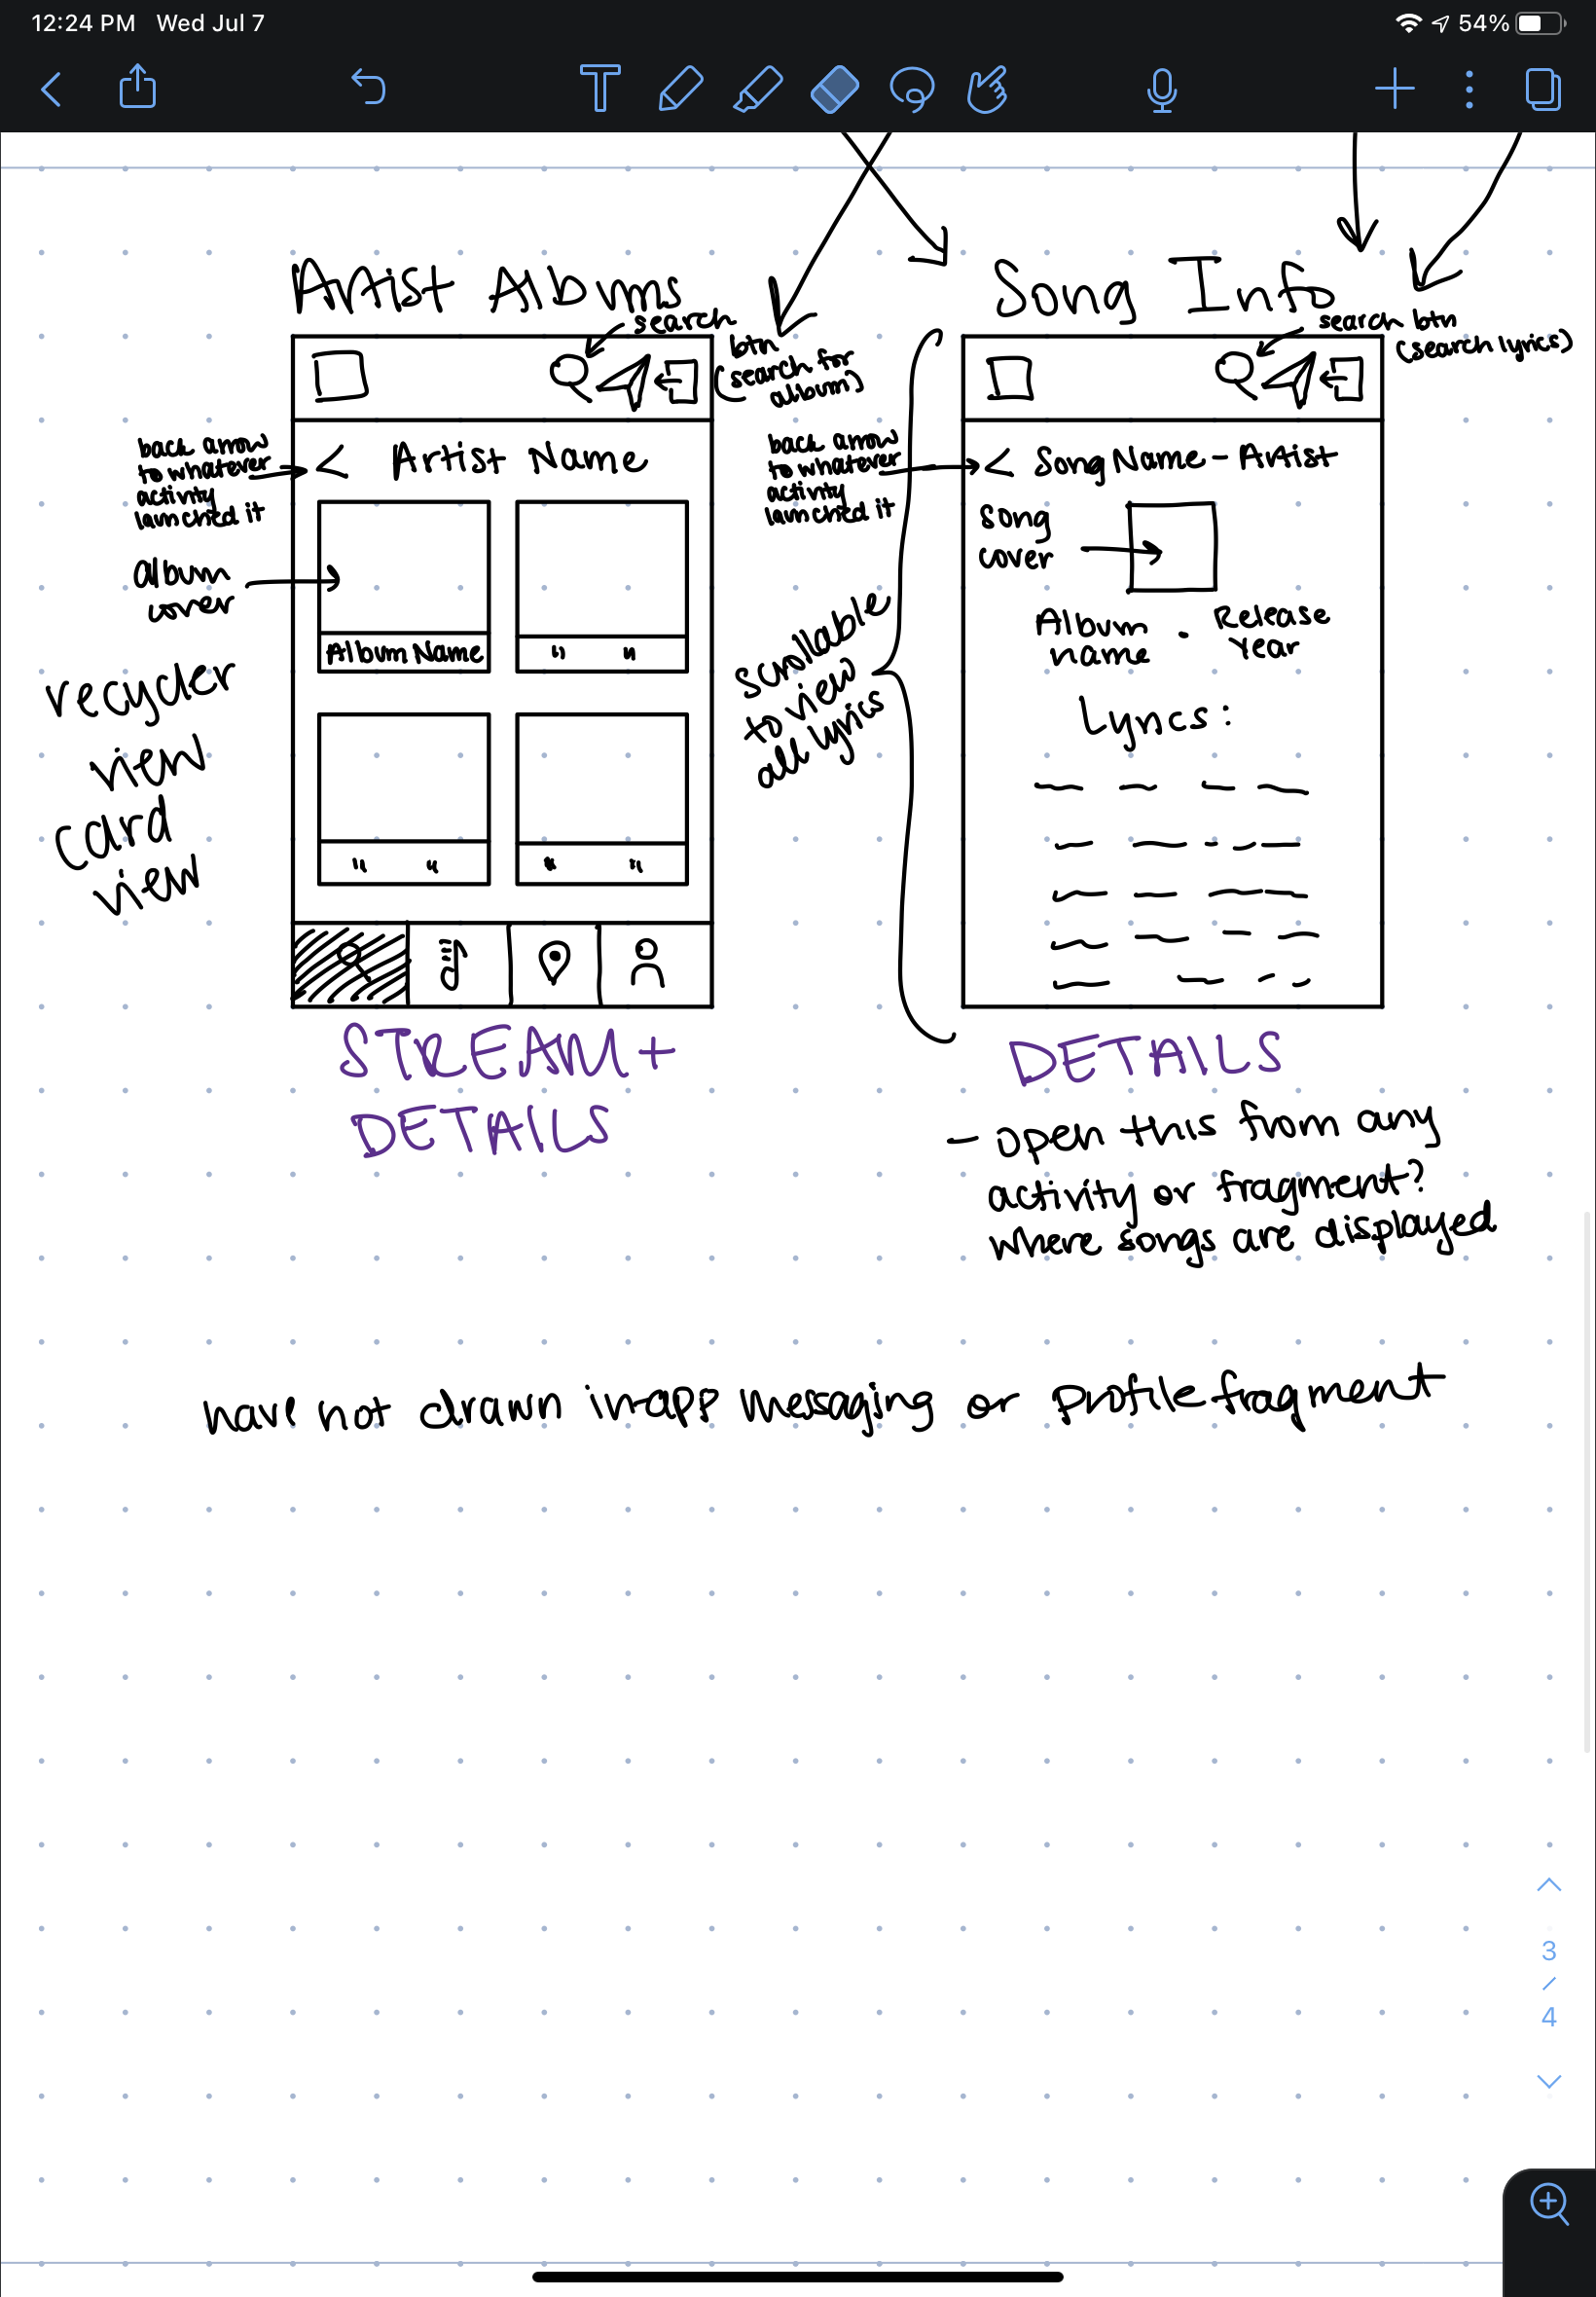 12:24 PM Wed Jul 7
54%
Artist Albums
search
btn
(search for
album)
back arrow
to whatever
activity
launched it
< Artist Name
album
cover
Album Name
" "
" "
" "
recycler
view
card
view
STREAM +
DETAILS
Song Info
search btn
(search lyrics)
back arrow
to whatever
activity
launched it
< Song Name - Artist
song
cover
Album
name
·
Release
Year
Lyrics:
scrollable
to view
all lyrics
DETAILS
- open this from any
activity or fragment?
where songs are displayed
have not drawn in-app messaging or profile fragment
3
/
4